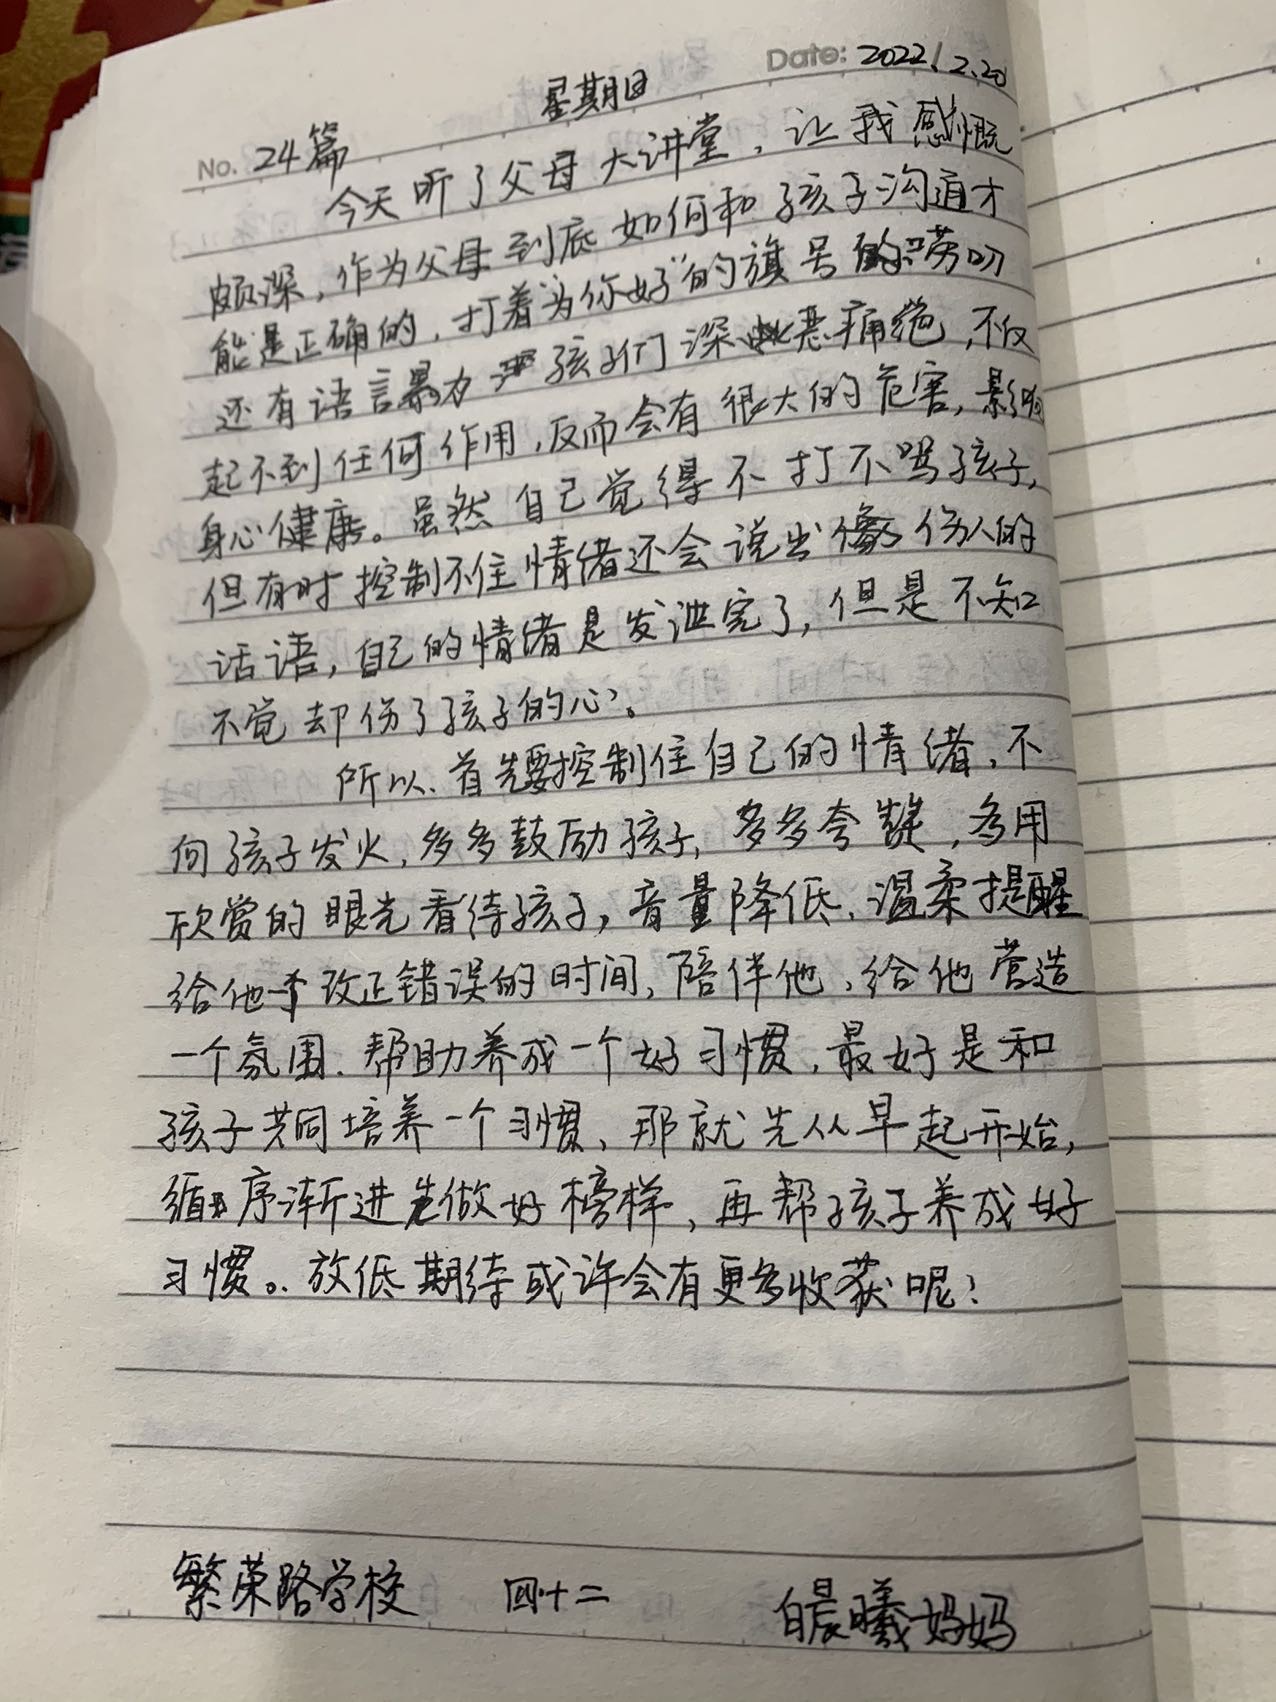 Date: 2022.2.20
星期日
No. 24篇
今天听了父母大讲堂，让我感慨
颇深，作为父母到底如何和孩子沟通才
能是正确的，打着"为你好"的旗号的唠叨
还有语言暴力 孩子们深恶痛绝，不仅
起不到任何作用，反而会有很大的危害，影响
身心健康。虽然自己觉得不打不骂孩子，
但有时控制不住情绪还会说出 伤人的
话语，自己的情绪是发泄完了，但是不知
不觉却伤了孩子的心。
所以、首先要控制住自己的情绪，不
向孩子发火，多多鼓励孩子，多多夸 ，多用
欣赏的眼光看待孩子，音量降低、温柔提醒
给他 改正错误的时间，陪伴他，给他营造
一个氛围．帮助养成一个好习惯，最好是和
孩子共同培养一个习惯、那就先从早起开始，
循序渐进先做好榜样，再帮孩子养成好
习惯。放低期待或许会有更多收获呢？
繁荣路学校 四·十二 白晨曦妈妈